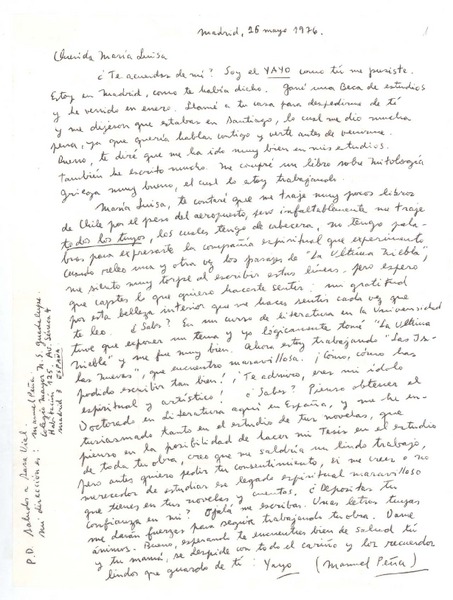 Madrid, 26 mayo 1976.
1
Querida María Luisa
¿Te acuerdas de mí? Soy el YAYO como tú me pusiste.
Estoy en Madrid, como te había dicho. Gané una Beca de estudios
y he venido en enero. Llamé a tu casa para despedirme de tí
y me dijeron que estabas en Santiago, lo cual me dió mucha
pena, ya que quería hablar contigo y verte antes de venirme.
Bueno, te diré que me ha ido muy bien en mis estudios.
También he escrito mucho. Me compré un libro sobre Mitología
Griega muy bueno, el cual lo estoy trabajando.
María Luisa, te contaré que me traje muy pocos libros
de Chile por el peso del aeropuerto, pero infaltablemente me traje
todos los tuyos, los cuales tengo de cabecera, no tengo pala-
bras para expresarte la compañía espiritual que experimento.
Cuando releo una y otra vez los pasajes de "La Ultima Niebla",
me siento muy torpe al escribir estas líneas, pero espero
que captes lo que quiero hacerte sentir: mi gratitud
por esta belleza interior que me haces sentir cada vez que
te leo. ¿Sabes? En un curso de literatura en la Universidad
tuve que exponer un tema y yo lógicamente tomé "La Ultima
Niebla" y me fue muy bien. Ahora estoy trabajando "Las Is-
las Nuevas", que encuentro maravillosa. ¡Cómo, cómo has
podido escribir tan bien! ¡Te admiro, eres mi ídolo
espiritual y artístico! ¿Sabes? Pienso obtener el
Doctorado en Literatura aquí en España, y me he en-
tusiasmado tanto en el estudio de tus novelas, que
pienso en la posibilidad de hacer mi Tesis en el estudio
de toda tu obra, creo que me saldría un lindo trabajo,
pero antes quiero pedir tu consentimiento, si me crees o no
merecedor de estudiar ese legado espiritual maravilloso
que tienes en tus novelas y cuentos. ¿Depositas tu
confianza en mí? Ojalá me escribas. Unas letras tuyas
me darán fuerzas para seguir trabajando tu obra. Dame
ánimos. Bueno, esperando te encuentres bien de salud tú
y tu mamá, se despide con todo el cariño y los recuerdos
lindos que guardo de tí: Yayo (Manuel Peña)
P.D. Saludos a Sara Vial.
Mi dirección es: Manuel Peña
Colegio Mayor N. S. Guadalupe
Habitación 125. Av. Séneca 4
Madrid 3 ESPAÑA